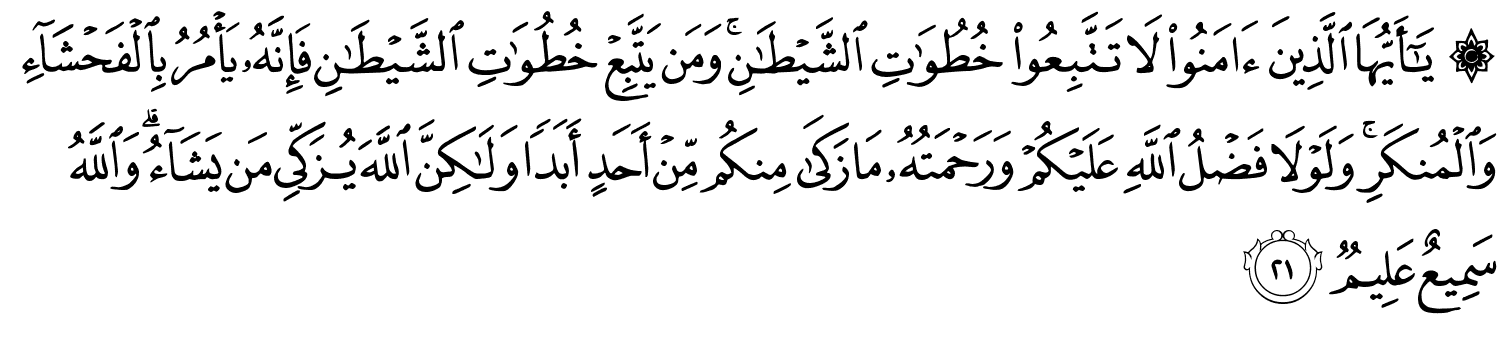 ۞ يَـٰٓأَيُّهَا ٱلَّذِينَ ءَامَنُوا۟ لَا تَتَّبِعُوا۟ خُطُوَٰتِ ٱلشَّيْطَـٰنِ ۚ وَمَن يَتَّبِعْ خُطُوَٰتِ ٱلشَّيْطَـٰنِ فَإِنَّهُۥ يَأْمُرُ بِٱلْفَحْشَآءِ
وَٱلْمُنكَرِ ۚ وَلَوْلَا فَضْلُ ٱللَّهِ عَلَيْكُمْ وَرَحْمَتُهُۥ مَا زَكَىٰ مِنكُم مِّنْ أَحَدٍ أَبَدًا وَلَـٰكِنَّ ٱللَّهَ يُزَكِّى مَن يَشَآءُ ۗ وَٱللَّهُ
سَمِيعٌ عَلِيمٌ ٢١